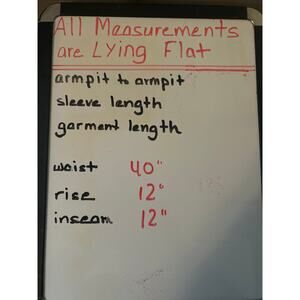 All Measurements
are Lying Flat
armpit to armpit
sleeve length
garment length
waist 40"
rise 12"
inseam 12"